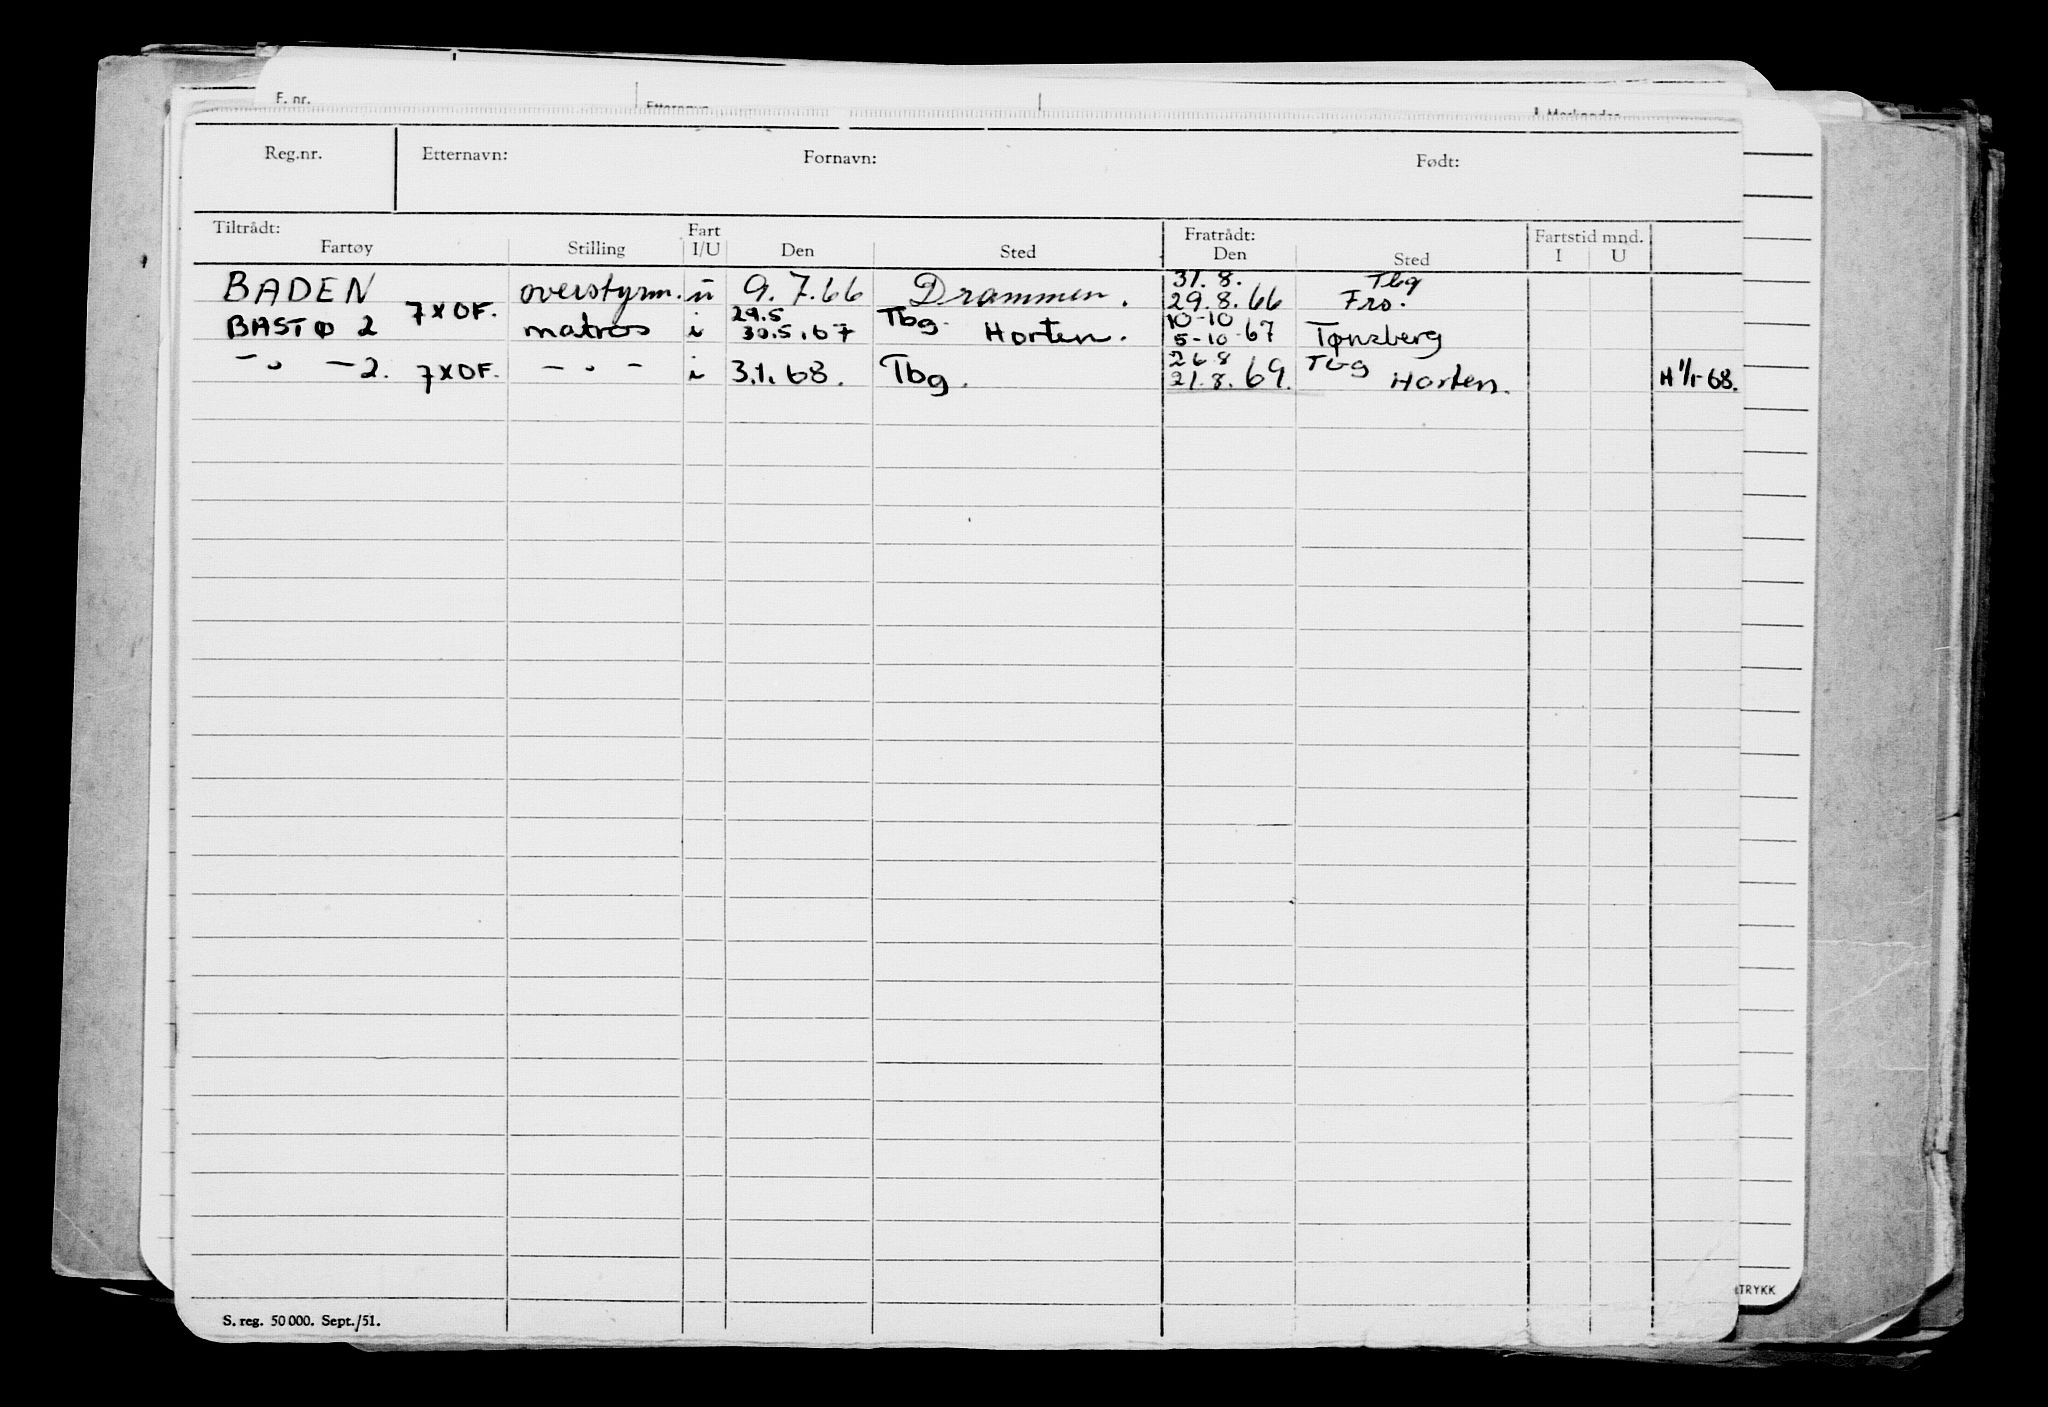 F. nr. Etternavn Merknader
Reg.nr. Etternavn: Fornavn: Født:
Tiltrådt: Fart Fratrådt: Fartstid mnd.
Fartøy Stilling I/U Den Sted Den Sted I U
31.8. Tbg
BADEN overstyrm. u 9.7.66 Drammen. 29.8.66 Fro.
7XOF. 29.5 Tbg. 10-10
BASTØ 2 matros i 30.5.67 Horten. 5-10 67 Tønsberg
26.8 Tbg
-"- -2. 7XOF. -"- i 3.1.68. Tbg. 21.8.69. Horten. H 1/1-68.
S. reg. 50 000. Sept./51.
TRYKK